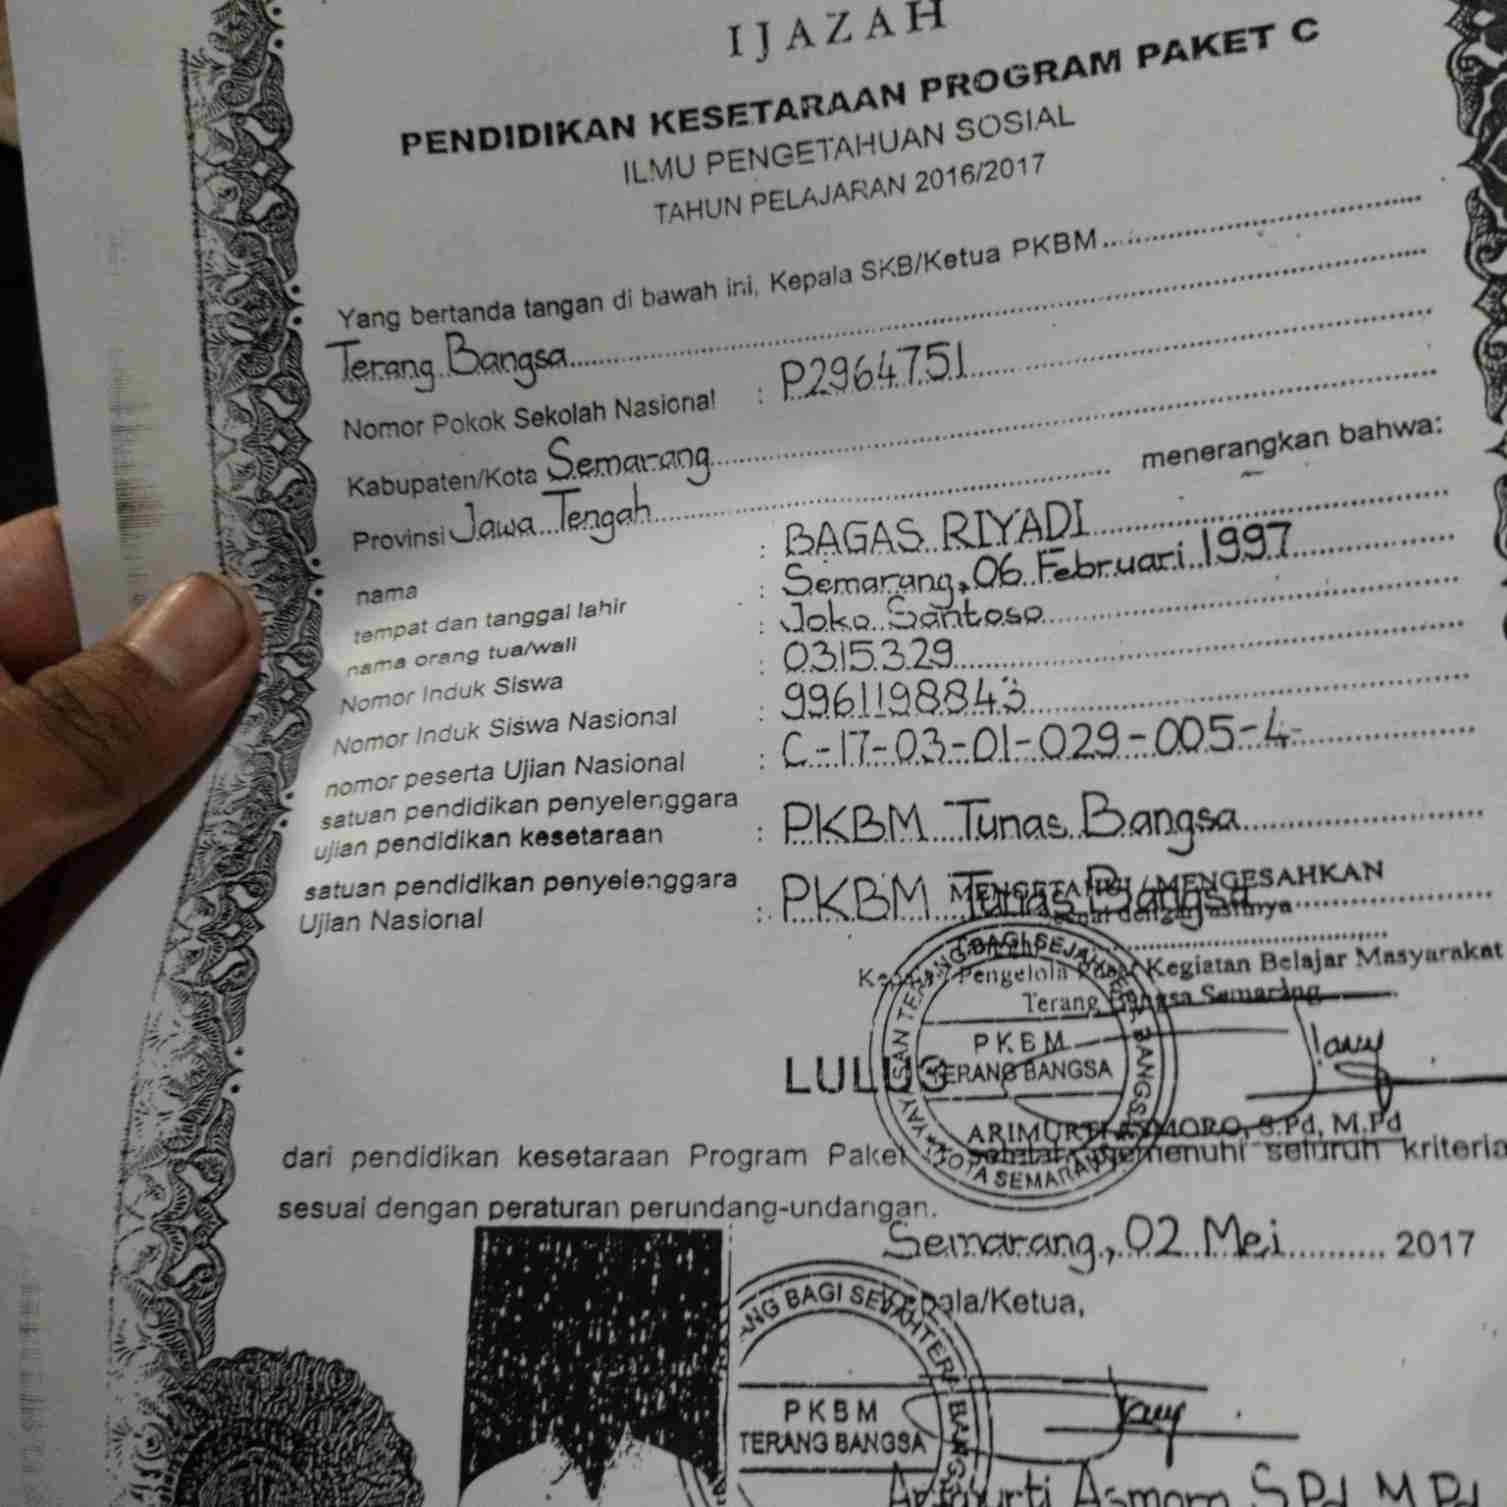 IJAZAH
PENDIDIKAN KESETARAAN PROGRAM PAKET C
ILMU PENGETAHUAN SOSIAL
TAHUN PELAJARAN 2016/2017
Yang bertanda tangan di bawah ini, Kepala SKB/Ketua PKBM
Terang Bangsa
Nomor Pokok Sekolah Nasional : P2964751
Kabupaten/Kota Semarang
Provinsi Jawa Tengah menerangkan bahwa:
nama : BAGAS RIYADI
tempat dan tanggal lahir : Semarang, 06 Februari 1997
nama orang tua/wali : Joko Santoso
Nomor Induk Siswa : 0315329
Nomor Induk Siswa Nasional : 9961198843
nomor peserta Ujian Nasional : C-17-03-01-029-005-4
satuan pendidikan penyelenggara
ujian pendidikan kesetaraan : PKBM Tunas Bangsa
satuan pendidikan penyelenggara
Ujian Nasional : PKBM Tunas Bangsa
MENGETAHUI / MENGESAHKAN
dengan aslinya
Pengelola Pusat Kegiatan Belajar Masyarakat
Terang Bangsa Semarang
PKBM
TERANG BANGSA
LULUS
ARIMURTI ASMORO, S.Pd, M.Pd
dari pendidikan kesetaraan Program Paket setelah memenuhi seluruh kriteria
sesuai dengan peraturan perundang-undangan.
Semarang, 02 Mei 2017
Kepala/Ketua,
BAGI SEJAHTERA BANGSA
PKBM
TERANG BANGSA
Arimurti Asmoro S.Pd M.Pd